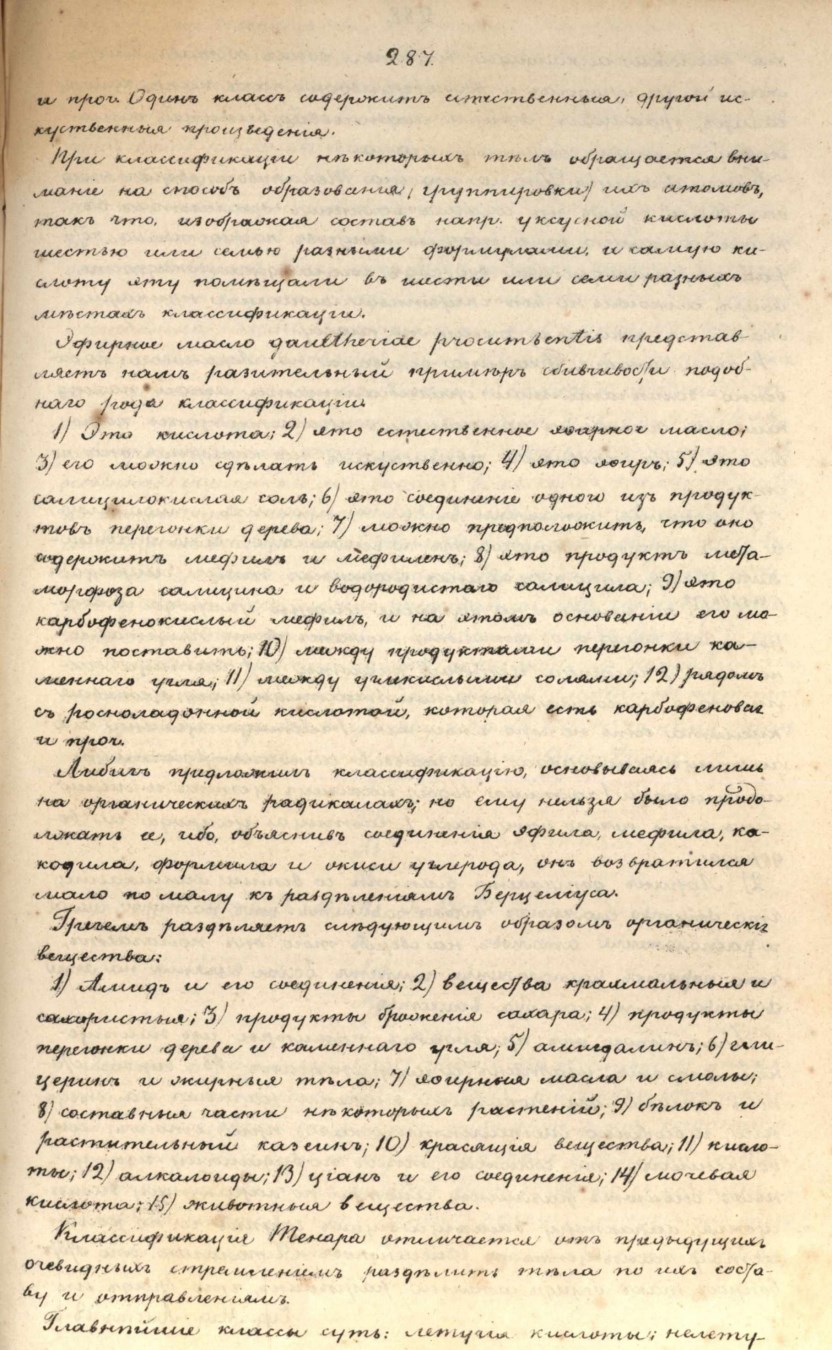 287.
и проч. Одинъ классъ содержитъ естественныя, другой ис-
куственныя произведенія.
При классификаціи нѣкоторыхъ тѣлъ обращается вни-
маніе на способъ образованія (группировки) ихъ атомовъ,
такъ что, изображая составъ напр. уксусной кислоты
шестью или семью разными формулами, и самую ки-
слоту эту помѣщали въ шести или семи разныхъ
мѣстахъ классификаціи.
Эфирное масло gaultheriae procumbentis представ-
ляетъ намъ разительный примѣръ сбивчивости подоб-
наго рода классификаціи.
1) Это кислота; 2) это естественное эфирное масло;
3) его можно сдѣлать искуственно; 4) это эфиръ; 5) это
салицилокислая соль; 6) это соединеніе одного изъ продук-
товъ перегонки дерева; 7) можно предположить, что оно
содержитъ мефилъ и мефиленъ; 8) это продуктъ мета-
морфоза салицина и водородистаго салицила; 9) это
карбофенокислый мефилъ, и на этомъ основаніи его мо-
жно поставить; 10) между продуктами перегонки ка-
меннаго угля; 11) между углекислыми солями; 12) рядомъ
съ росноладонной кислотой, которая есть карбофеновая
и проч.
Либигъ предложилъ классификацію, основываясь лишь
на органическихъ радикалахъ; но ему нельзя было продо-
лжать ее, ибо, объяснивъ соединенія эфила, мефила, ка-
кодила, формила и окиси углерода, онъ возвратился
мало по малу къ раздѣленіямъ Берцеліуса.
Грегемъ раздѣляетъ слѣдующимъ образомъ органическія
вещества:
1) Амидъ и его соединенія; 2) вещества крахмальныя и
сахаристыя; 3) продукты броженія сахара; 4) продукты
перегонки дерева и каменнаго угля; 5) амигдалинъ; 6) гли-
церинъ и жирныя тѣла; 7) эфирныя масла и смолы;
8) составныя части нѣкоторыхъ растеній; 9) бѣлокъ и
растительный казеинъ; 10) красящія вещества; 11) кисло-
ты; 12) алкалоиды; 13) ціанъ и его соединенія; 14) мочевая
кислота; 15) животныя вещества.
Классификація Тенара отличается отъ предыдущихъ
очевиднымъ стремленіемъ раздѣлить тѣла по ихъ соста-
ву и отправленіямъ.
Главнѣйшіе классы суть: летучія кислоты; нелету-